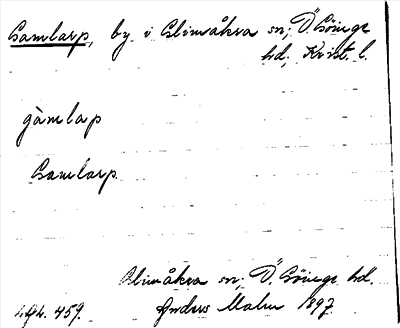 Gamlarp, by i Glimåkra sn; Ö. Göinge
hd, Krist. l.
gàmlap
Gamlarp.
Glimåkra sn; Ö. Göinge hd.
459. Anders Malm 1897.